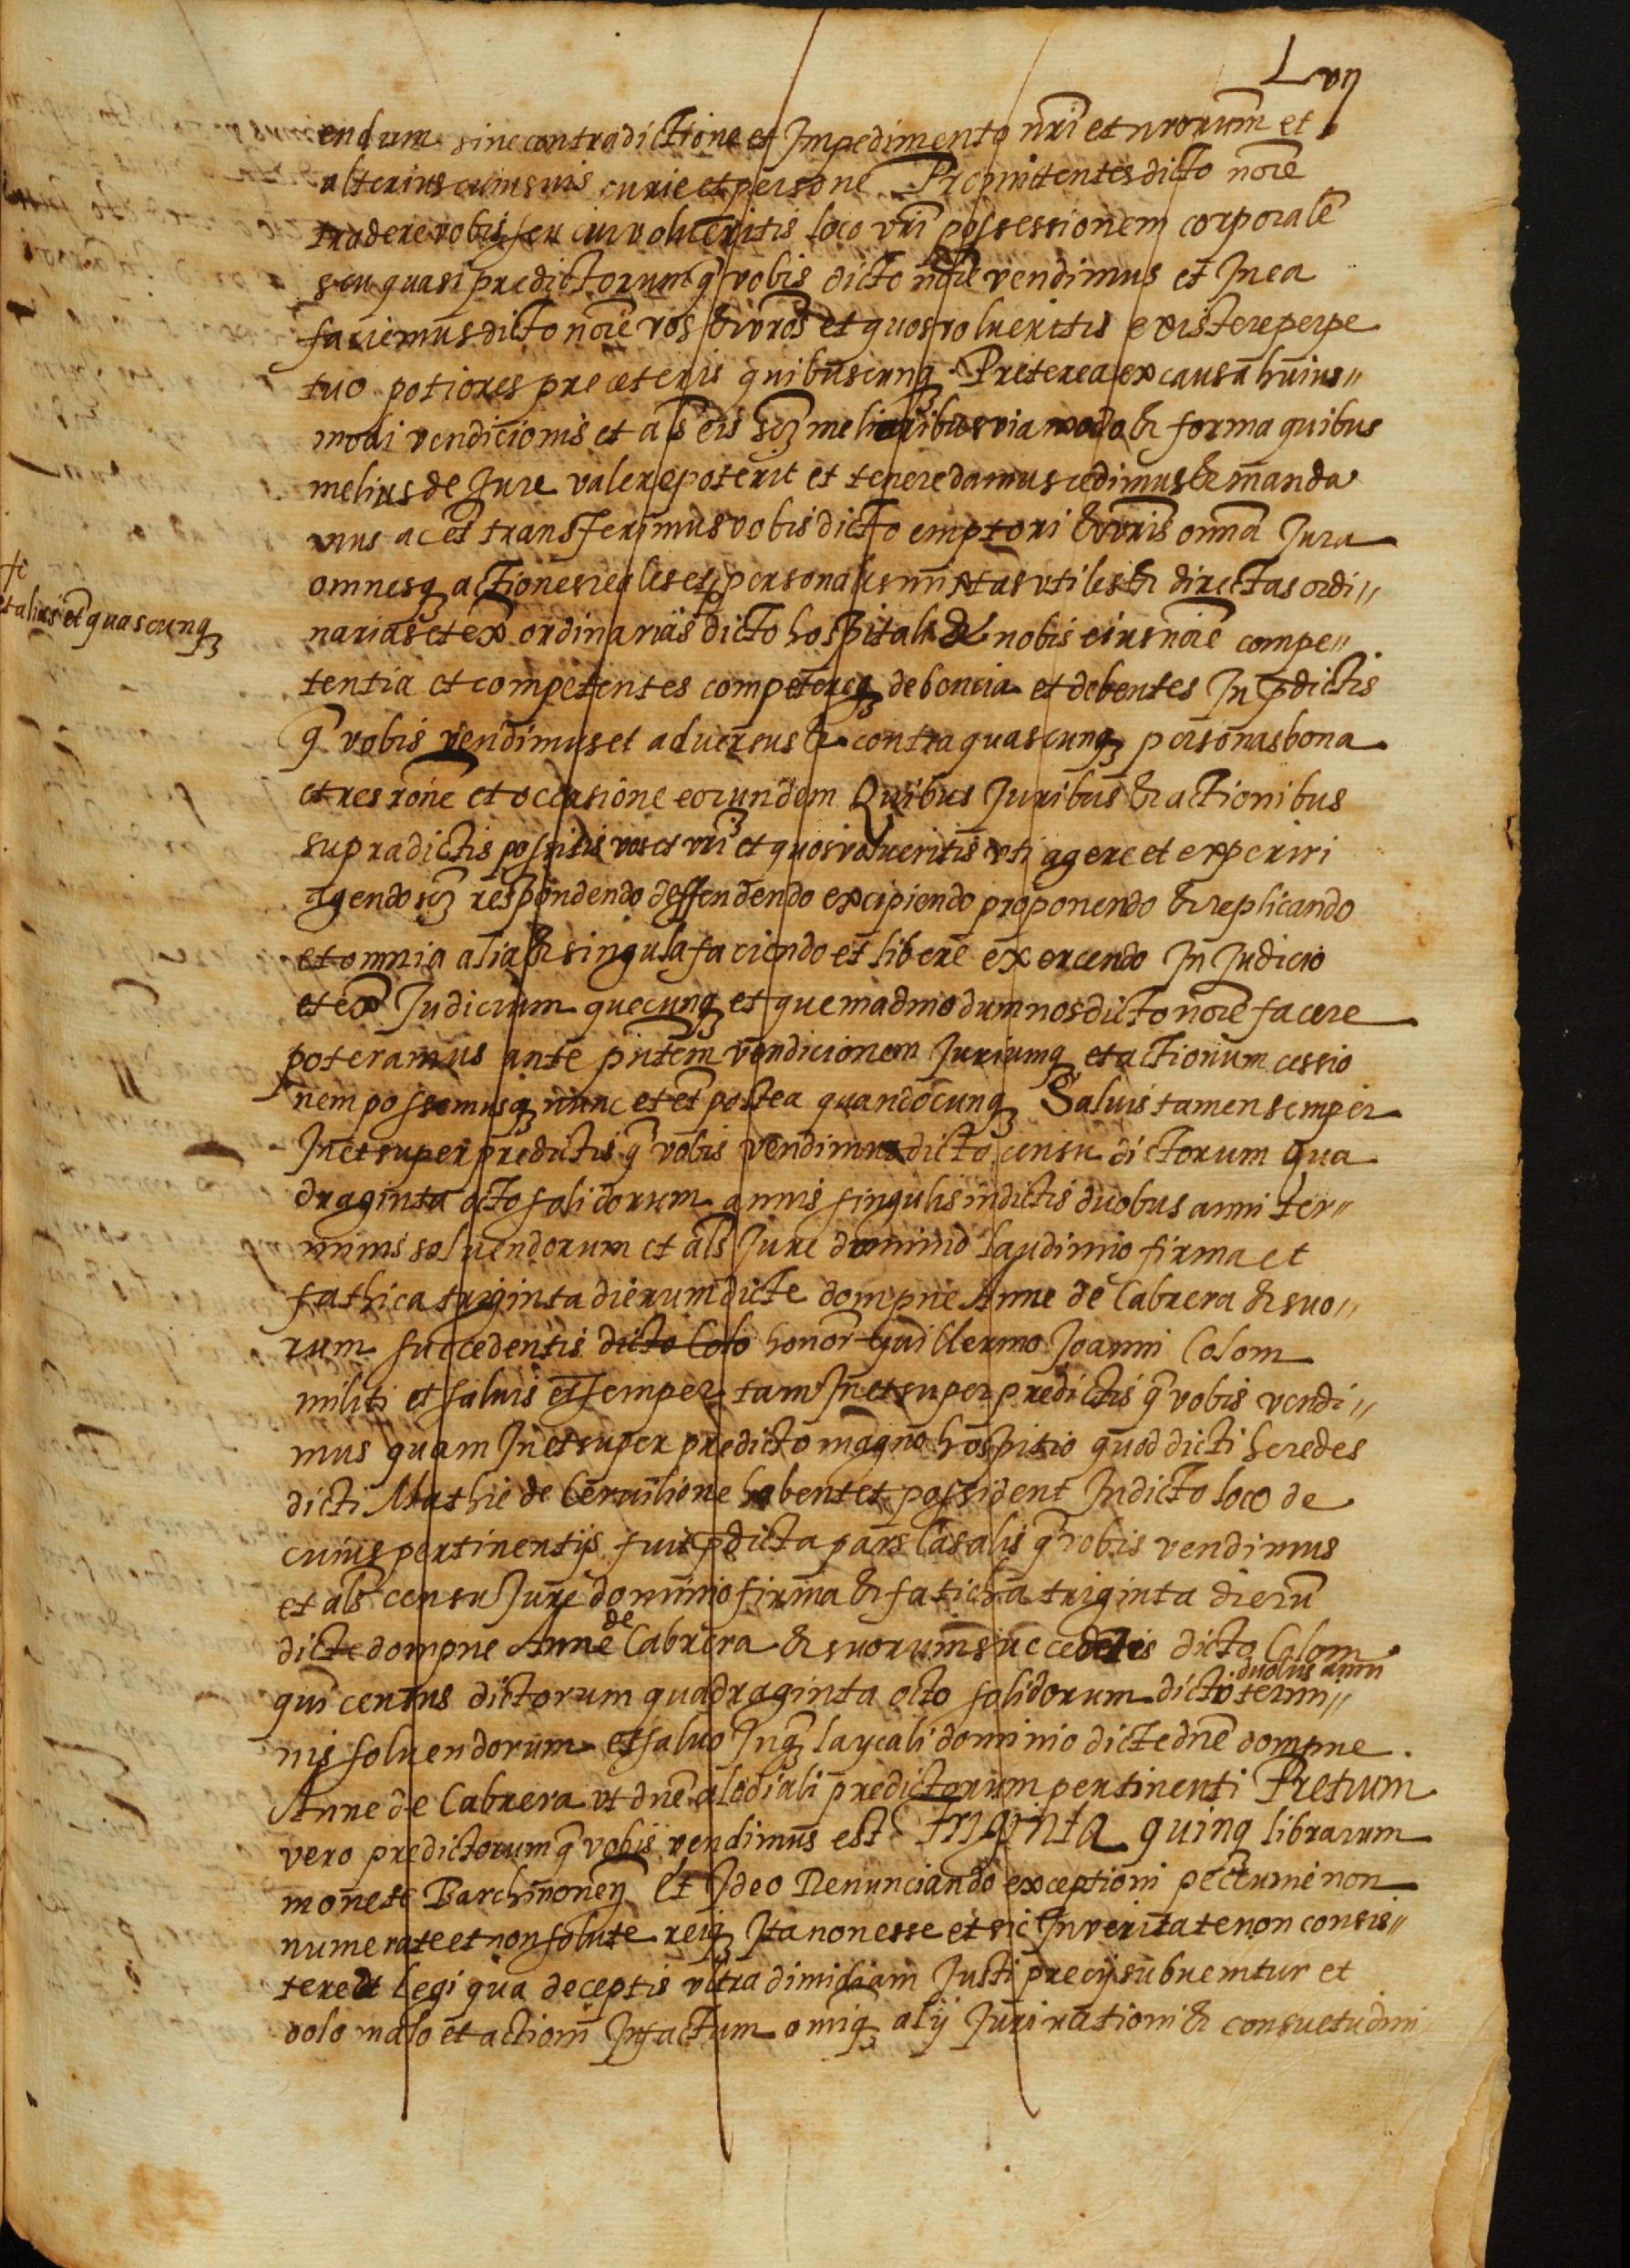 Lvij
endum sine contradictione et Impedimento nr̃i et nrorum̃ et
alterius cuiusvis curie et persone Promittentes dicto noĩe
tradere vobis seu cui volueritis loco vr̃i possessionem corporalẽ
seu quasi predictorum q̃ vobis dicto noĩe vendimus et In ea
faciemus dicto noĩe vos & vr̃os et quos volueritis existere perpe
tuo potiores pre ceteris quibuscunq3 Preterea ex causa huius〃
modi vendicionis et als̃ eis melioribus via modo & forma quibus
melius de Jure valere poterit et tenere damus cedimus & manda
mus ac et̃ transferimus vobis dicto emptori & vr̃is om̃ia Jura
omnesq3 actiones reales et personales mixtas vtiles & directas ordi〃
et alias et̃ quascunq3
narias et ex̃ordinarias dicto hospitali & nobis eius noĩe compe〃
tentia et competentes competereq3 debencia et debentes In p̃dictis
q̃ vobis vendimus et adversus & contra quascunq3 personas bona
et res rõne et occasione eorundem Quibus Juribus & actionibus
supradictis possitis vos et vr̃i et quos volueritis vti agere et experiri
agendo sc3 respondendo deffendendo excipiendo proponendo & replicando
et omnia alia & singula faciendo et libere exercendo In Judicio
et ex̃ Judicium quecunq3 et quemadmodum nos dicto noĩe facere
poteramus ante pñtem vendicionem Juriumq3 et actionum cessio
nem possemusq3 nunc et et̃ postea quandocunq3 Saluis tamen semper
In et super predictis q̃ vobis vendimus dicto censu dictorum qua
draginta octo solidorum annis singulis in dictis duobus anni ter〃
minis soluendorum et als̃ Jure dominio laudimio firma et
fathica triginta dierum dicte dompne Anne de Cabrera & suo〃
rum succedentis dicto Colo honor̃ Guillermo Joanni Colom
militi et saluis et̃ semper tam In et super predictis q̃ vobis vendi〃
mus quam In et super predicto magno hospitio quod dicti heredes
dicti Mathie de Ceruilione habent et possident In dicto loco de
cuius pertinentijs fuit p̃dicta pars Casalis q̃ vobis vendimus
et als̃ censu Jure dominio firma & faticha triginta dierũ
dicte dompne Anne de Cabrera & suorum succedẽtis dicto Colom
qui census dictorum quadraginta octo solidorum dictis duobus anni termi〃
nis soluendorum et saluo Inq3 laycali dominio dicte dnẽ dompne
Anne de Cabrera vt dnẽ alodiali predictorum pertinenti Pretium
vero predictorum q̃ vobis vendimus est triginta quinq3 librarum
monete Barchinonen̄ Et Ideo Renunciando exceptioni pecunie non
numerate et non solute reiq3 Ita non esse et sic In veritate non consis〃
tere et legi qua deceptis vltra dimidiam Justi precij subuenitur et
dolo malo et actioni In factum omiq3 alij Juri rationi & consuetudini